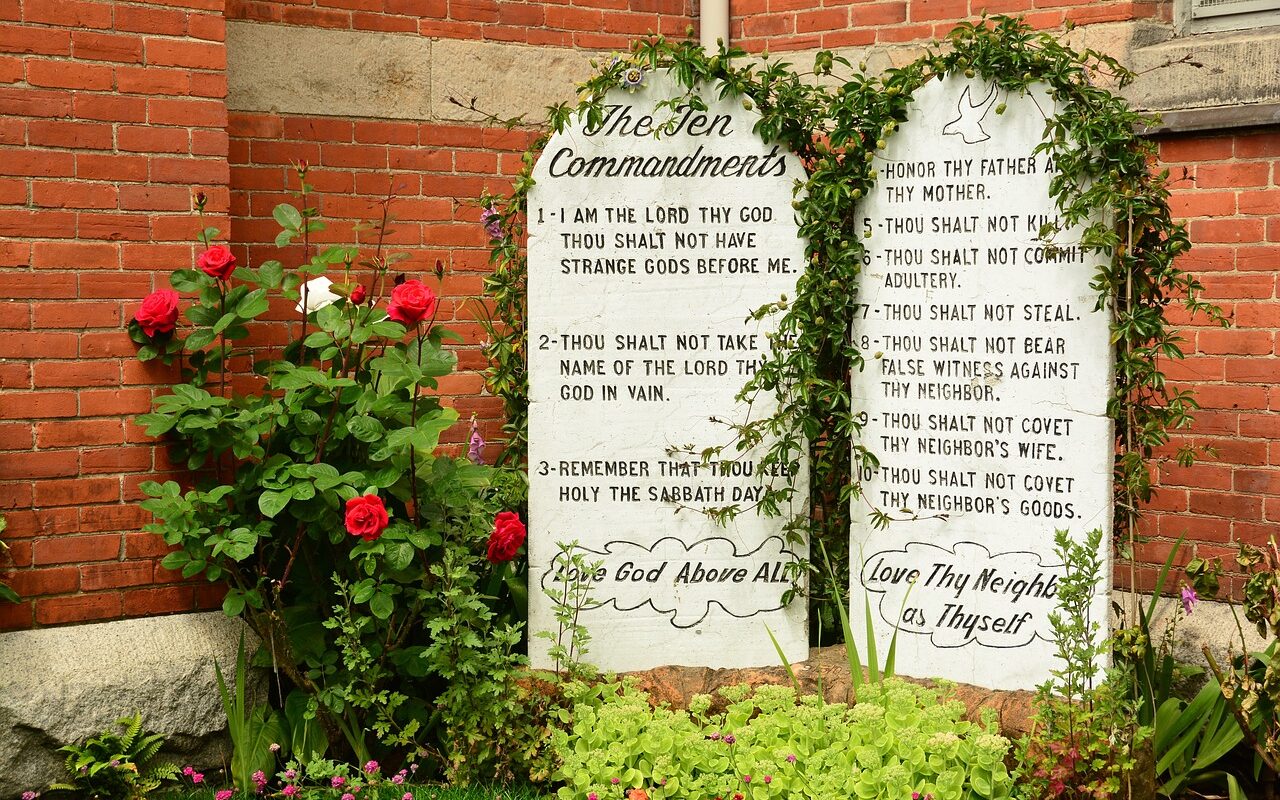 The Ten
Commandments
1-I AM THE LORD THY GOD
THOU SHALT NOT HAVE
STRANGE GODS BEFORE ME.
2-THOU SHALT NOT TAKE THE
NAME OF THE LORD THY
GOD IN VAIN.
3-REMEMBER THAT THOU KEEP
HOLY THE SABBATH DAY
Love God Above ALL
-HONOR THY FATHER A
THY MOTHER.
5-THOU SHALT NOT KILL
6-THOU SHALT NOT COMMIT
ADULTERY.
7-THOU SHALT NOT STEAL.
8-THOU SHALT NOT BEAR
FALSE WITNESS AGAINST
THY NEIGHBOR.
9-THOU SHALT NOT COVET
THY NEIGHBOR'S WIFE.
10-THOU SHALT NOT COVET
THY NEIGHBOR'S GOODS.
Love Thy Neighb
as Thyself